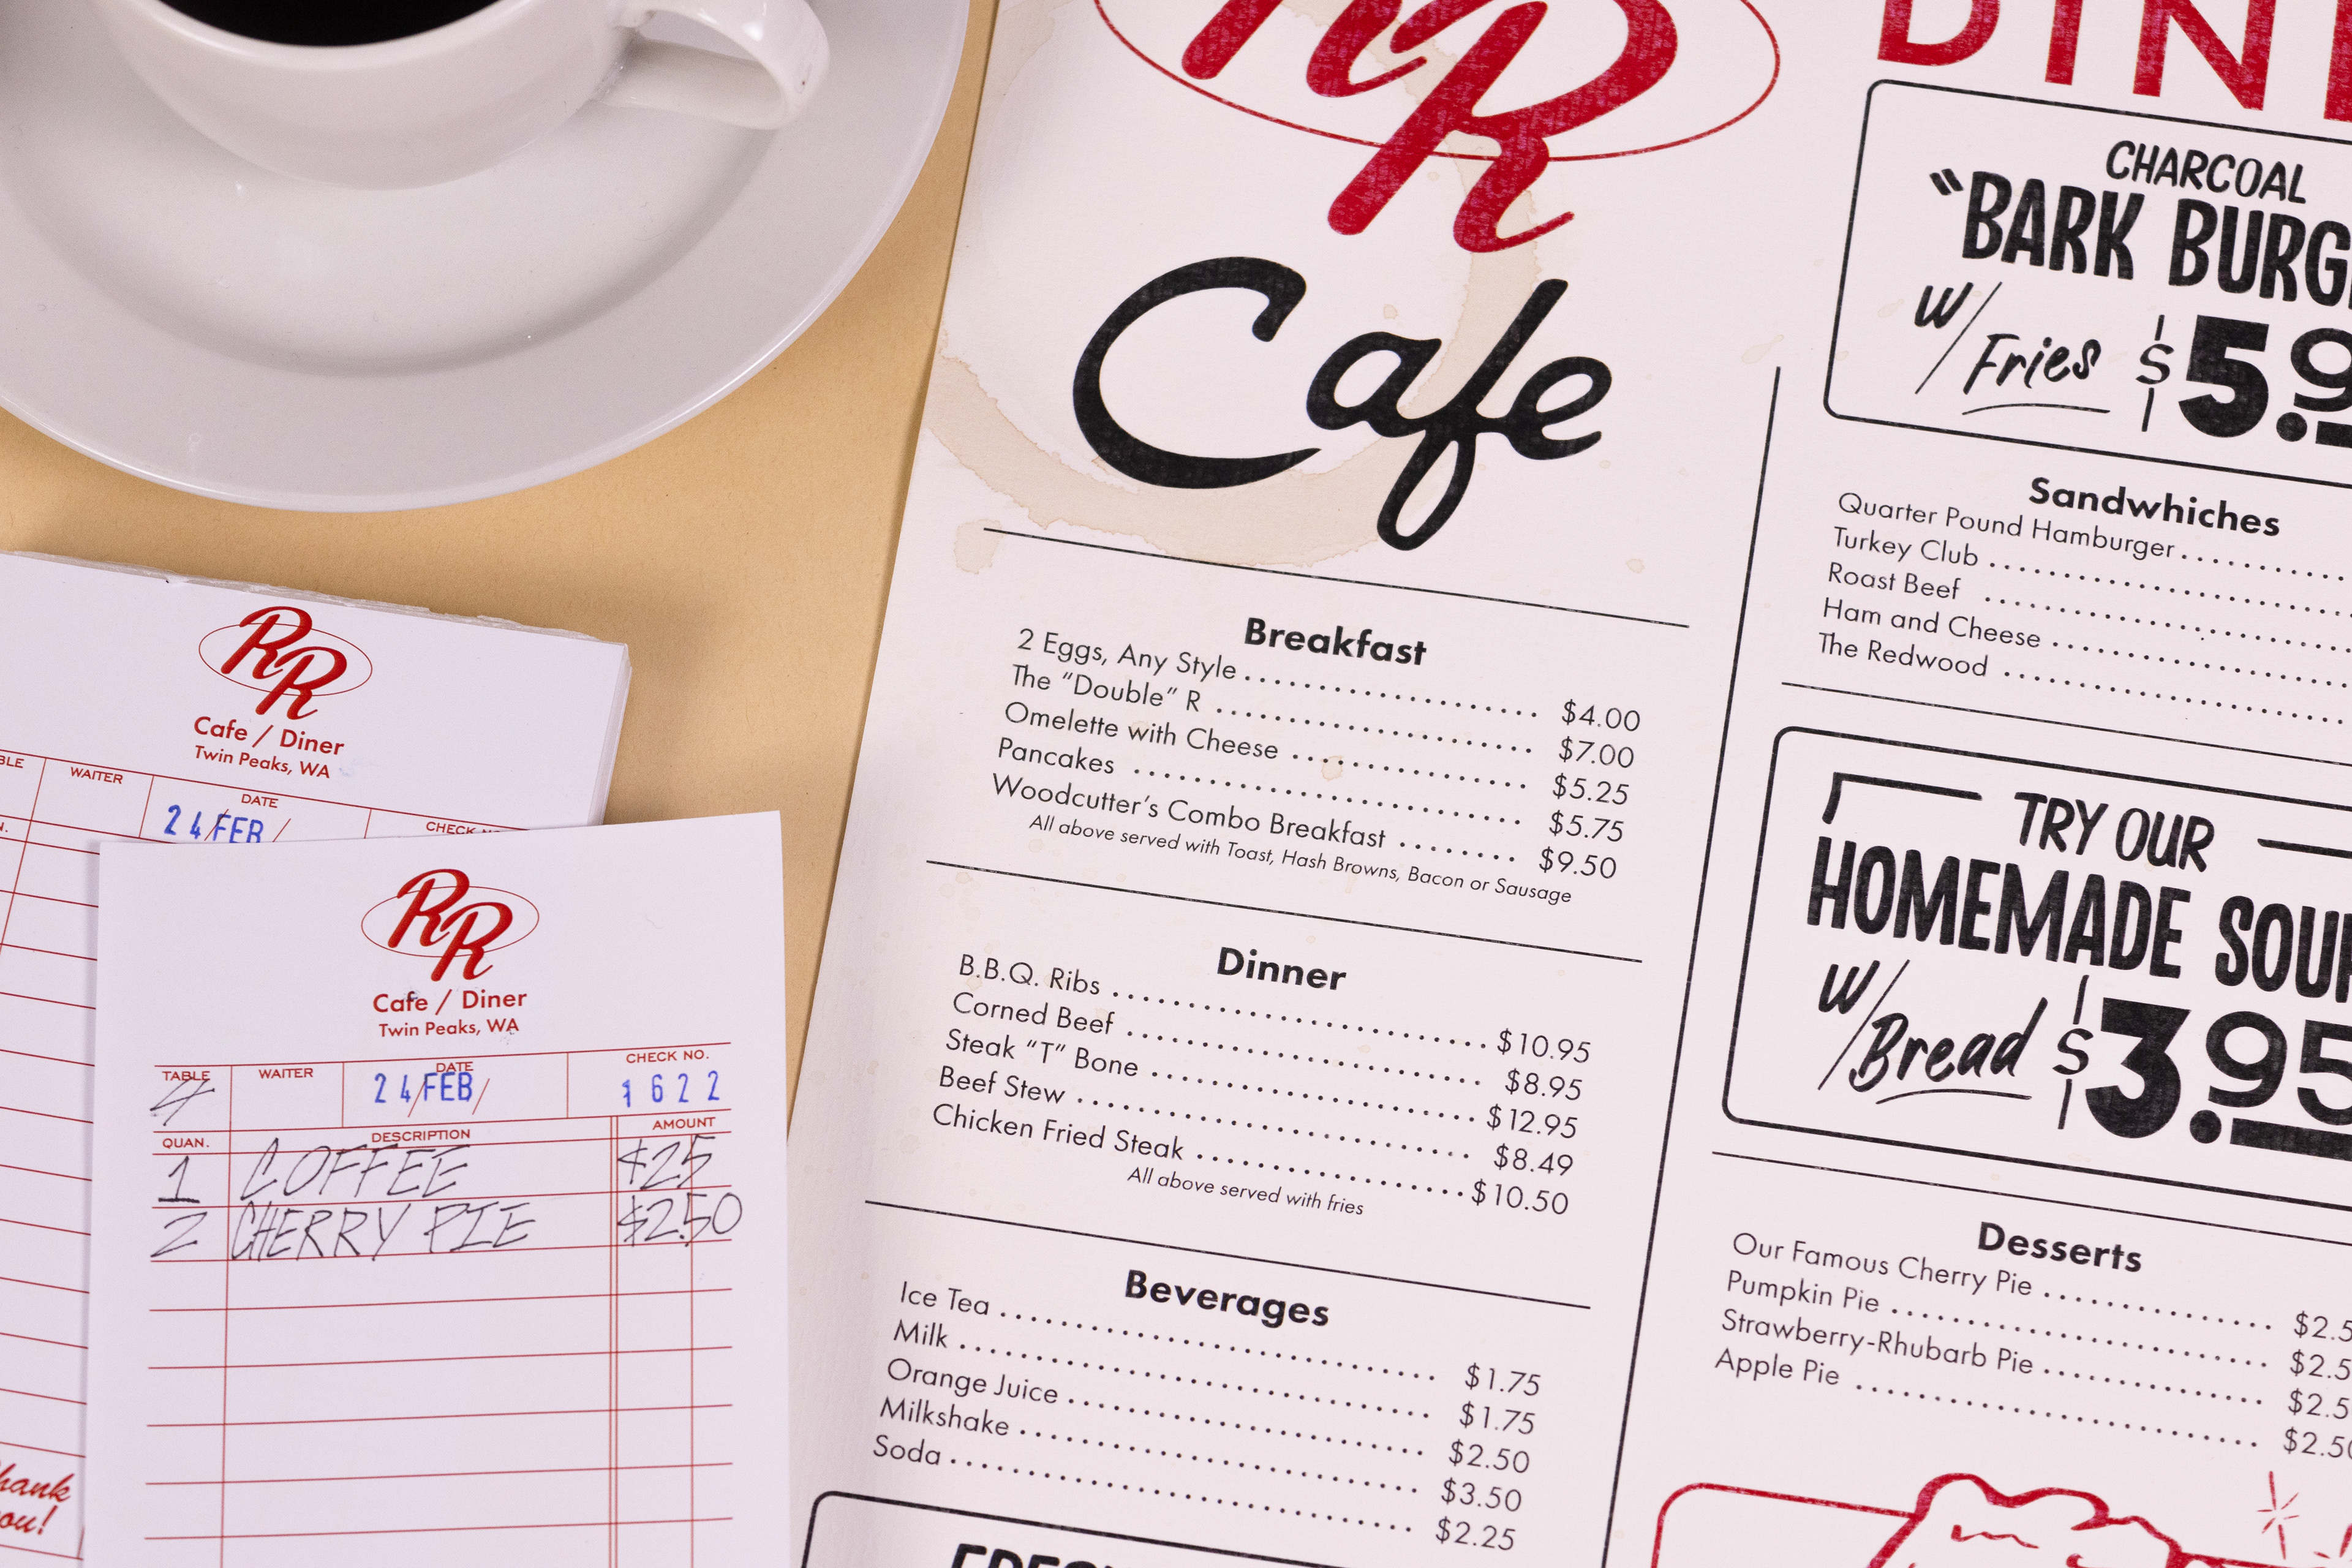 RR
Cafe
Breakfast
2 Eggs, Any Style $4.00
The “Double” R $7.00
Omelette with Cheese $5.25
Pancakes $5.75
Woodcutter’s Combo Breakfast $9.50
All above served with Toast, Hash Browns, Bacon or Sausage
Dinner
B.B.Q. Ribs $10.95
Corned Beef $8.95
Steak “T” Bone $12.95
Beef Stew $8.49
Chicken Fried Steak $10.50
All above served with fries
Beverages
Ice Tea $1.75
Milk $1.75
Orange Juice $2.50
Milkshake $3.50
Soda $2.25
CHARCOAL
“BARK
W/ Fries
Sandwhiches
Quarter Pound Hamburger
Turkey Club
Roast Beef
Ham and Cheese
The Redwood
TRY OUR
HOMEMADE
W/ Bread $3.95
Desserts
Our Famous Cherry Pie
Pumpkin Pie
Strawberry-Rhubarb Pie
Apple Pie $2.50
RR
Cafe / Diner
Twin Peaks, WA
WAITER DATE CHECK
24/FEB/
RR
Cafe / Diner
Twin Peaks, WA
TABLE WAITER DATE CHECK NO.
4 24/FEB/ 1622
QUAN. DESCRIPTION AMOUNT
1 COFFEE $25
2 CHERRY PIE $2.50